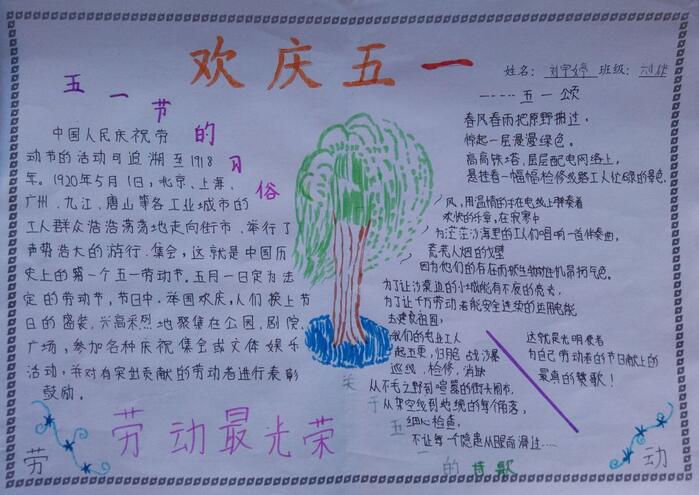 欢庆五一
姓名：刘宇婷 班级：
五一节的习俗
中国人民庆祝劳
动节的活动可追溯至1918
年。1920年5月1日，北京、上海、
广州、九江、唐山等各工业城市的
工人群众浩浩荡荡地走向街市、举行了
声势浩大的游行、集会，这就是中国历
史上的第一个五一劳动节。五月一日定为法
定的劳动节，节日中，举国欢庆，人们换上节
日的盛装，兴高采烈地聚集在公园、剧院
广场，参加各种庆祝集会或文体娱乐
活动，并对有突出贡献的劳动者进行表彰
鼓励。
劳动最光荣
劳
-----五一颂
春风春雨把原野拥过，
惊起一层漫漫绿色。
高高铁塔，层层配电网络上，
是挂着一幅幅检修线路工人忙碌的景色。
风，用温情的手在电线上弹奏着
欢快的乐章，在寂寞中
为茫茫沙海里的工人们唱响一首伴奏曲，
荒芜人烟的戈壁
因为他们的存在而被生物勃勃生机昂扬气色。
为了让沙漠边的小城能有不夜的亮光，
为了让千万劳动者能安全连续的运用电能
去建设祖国，
我们的电业工人
起五更，归宿战沙漠
巡线、检修、消缺
从不毛之野到喧嚣的街头闹市，
从架空线到地缆的每个角落，
细心检查，
不让每一个隐患从眼前滑过……
这就是光明使者
为自己劳动者的节日献上的
最真的赞歌！
关于五一的诗歌
动